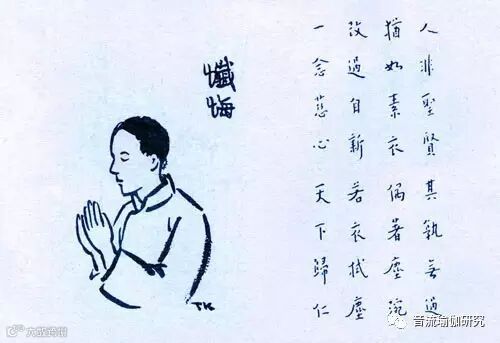 懺悔
人非聖賢其孰無過
猶如素衣偶著塵涴
改過自新若衣拭塵
一念慈心天下歸仁
TK
音流瑜伽研究